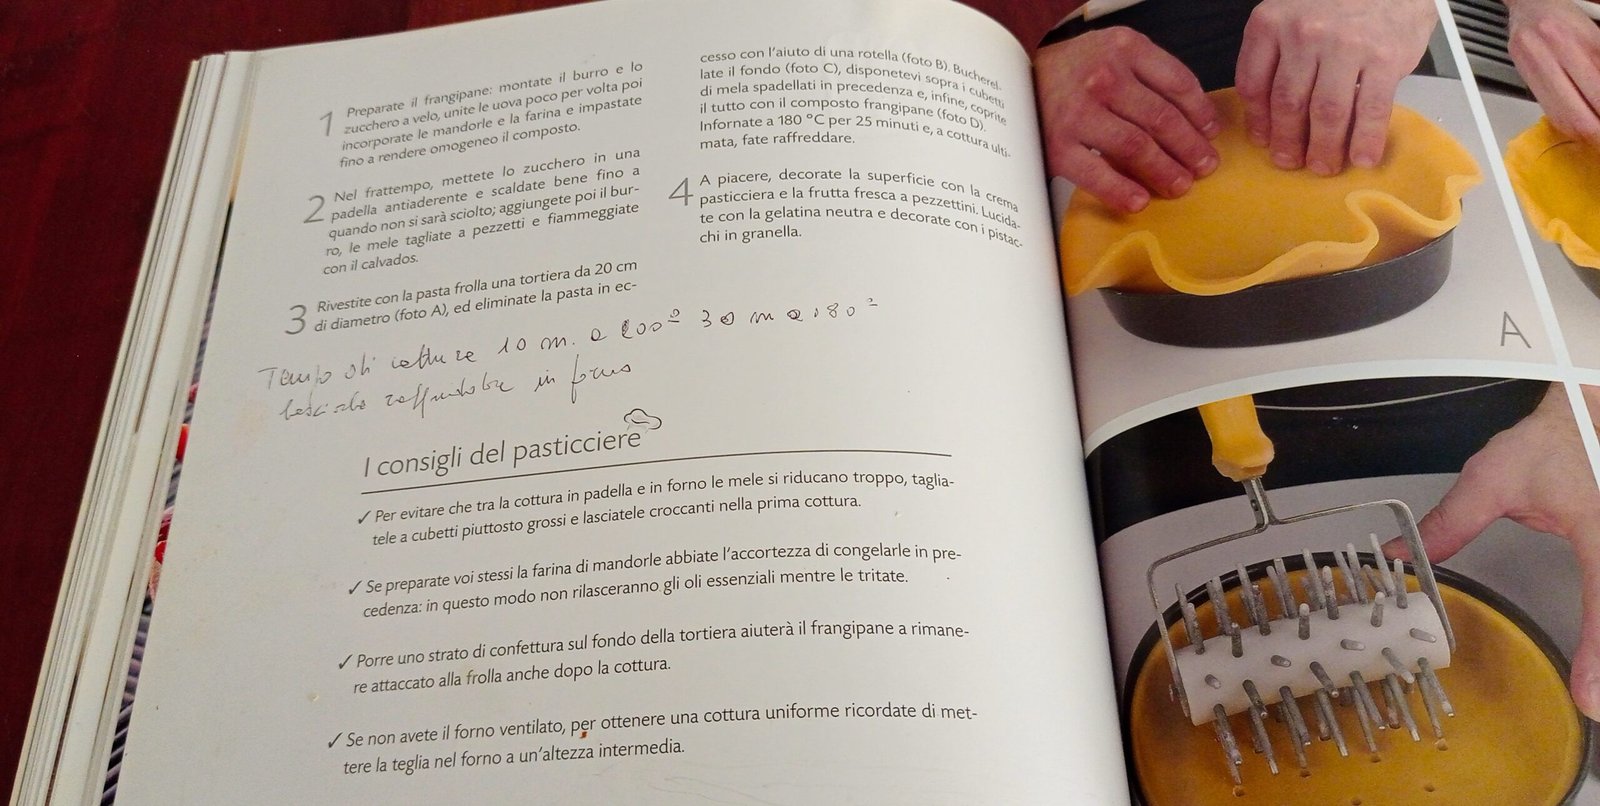 1 Preparate il frangipane: montate il burro e lo
zucchero a velo, unite le uova poco per volta poi
incorporate le mandorle e la farina e impastate
fino a rendere omogeneo il composto.
2 Nel frattempo, mettete lo zucchero in una
padella antiaderente e scaldate bene fino a
quando non si sarà sciolto; aggiungete poi il bur-
ro, le mele tagliate a pezzetti e fiammeggiate
con il calvados.
3 Rivestite con la pasta frolla una tortiera da 20 cm
di diametro (foto A), ed eliminate la pasta in ec-
cesso con l'aiuto di una rotella (foto B). Bucherel-
late il fondo (foto C), disponetevi sopra i cubetti
di mela spadellati in precedenza e, infine, coprite
il tutto con il composto frangipane (foto D).
Infornate a 180 °C per 25 minuti e, a cottura ulti-
mata, fate raffreddare.
4 A piacere, decorate la superficie con la crema
pasticciera e la frutta fresca a pezzettini. Lucida-
te con la gelatina neutra e decorate con i pistac-
chi in granella.
Tempo di cottura 10 m. a 200° 30 m a 180°
lasciare raffreddare in forno
I consigli del pasticciere
✓ Per evitare che tra la cottura in padella e in forno le mele si riducano troppo, taglia-
tele a cubetti piuttosto grossi e lasciatele croccanti nella prima cottura.
✓ Se preparate voi stessi la farina di mandorle abbiate l'accortezza di congelarle in pre-
cedenza: in questo modo non rilasceranno gli oli essenziali mentre le tritate.
✓ Porre uno strato di confettura sul fondo della tortiera aiuterà il frangipane a rimane-
re attaccato alla frolla anche dopo la cottura.
✓ Se non avete il forno ventilato, per ottenere una cottura uniforme ricordate di met-
tere la teglia nel forno a un'altezza intermedia.
A